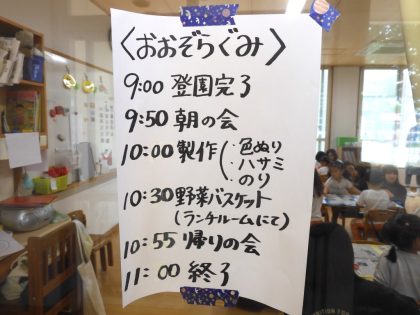 〈おおぞらぐみ〉
9:00 登園完了
9:50 朝の会
10:00 製作(・色ぬり
・ハサミ
・のり
10:30 野菜バスケット
(ランチルームにて)
10:55 帰りの会
11:00 終了